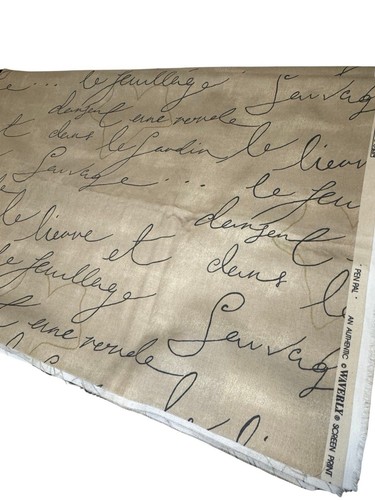 ... le feuillage Sauvag
dansent une ronde
t dans le Jardin, le lievr
Sauvage ... le feu
dansent
le lievre et dans l
le feuillage
t une ronde Sauvag
· PEN PAL · AN AUTHENTIC © WAVERLY ® SCREEN PRINT